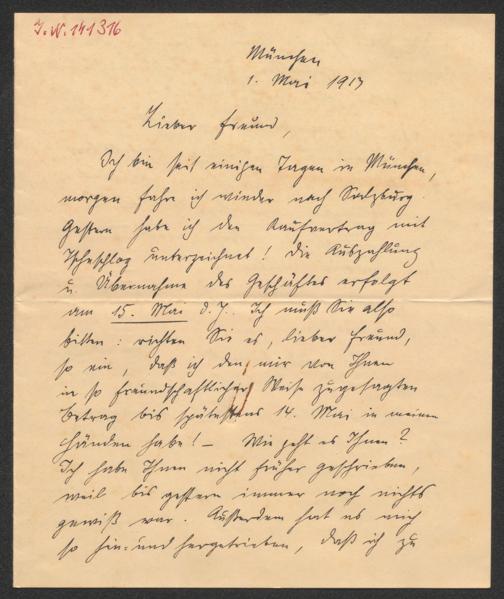 J. N. 141316
München
1. Mai 1917
Lieber Freund,
Ich bin seit einigen Tagen in München,
morgen fahre ich wieder nach Salzburg.
Gestern habe ich den Kaufvertrag mit
unterzeichnet! Die Auszahlung
u. Übernahme des Geschäftes erfolgt
am 15. Mai d. J. Ich muß Sie also
bitten: richten Sie es, lieber Freund,
so ein, daß ich den mir von Ihnen
in so freundschaftlicher Weise zugesagten
Betrag bis spätestens 14. Mai in meinen
Händen habe! – Wie geht es Ihnen?
Ich habe Ihnen nicht früher geschrieben,
weil bis gestern immer noch nichts
gewiß war. Außerdem hat es mich
so hin- und hergetrieben, daß ich zu